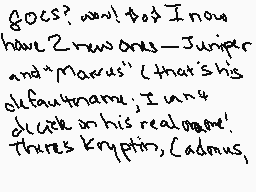 gocs? wow! $o$ I now
have 2 new ones—Juniper
and "Marcus" (that's his
defaultname; I can't
decide on his real name!
There's Kryptin, Cadmus,